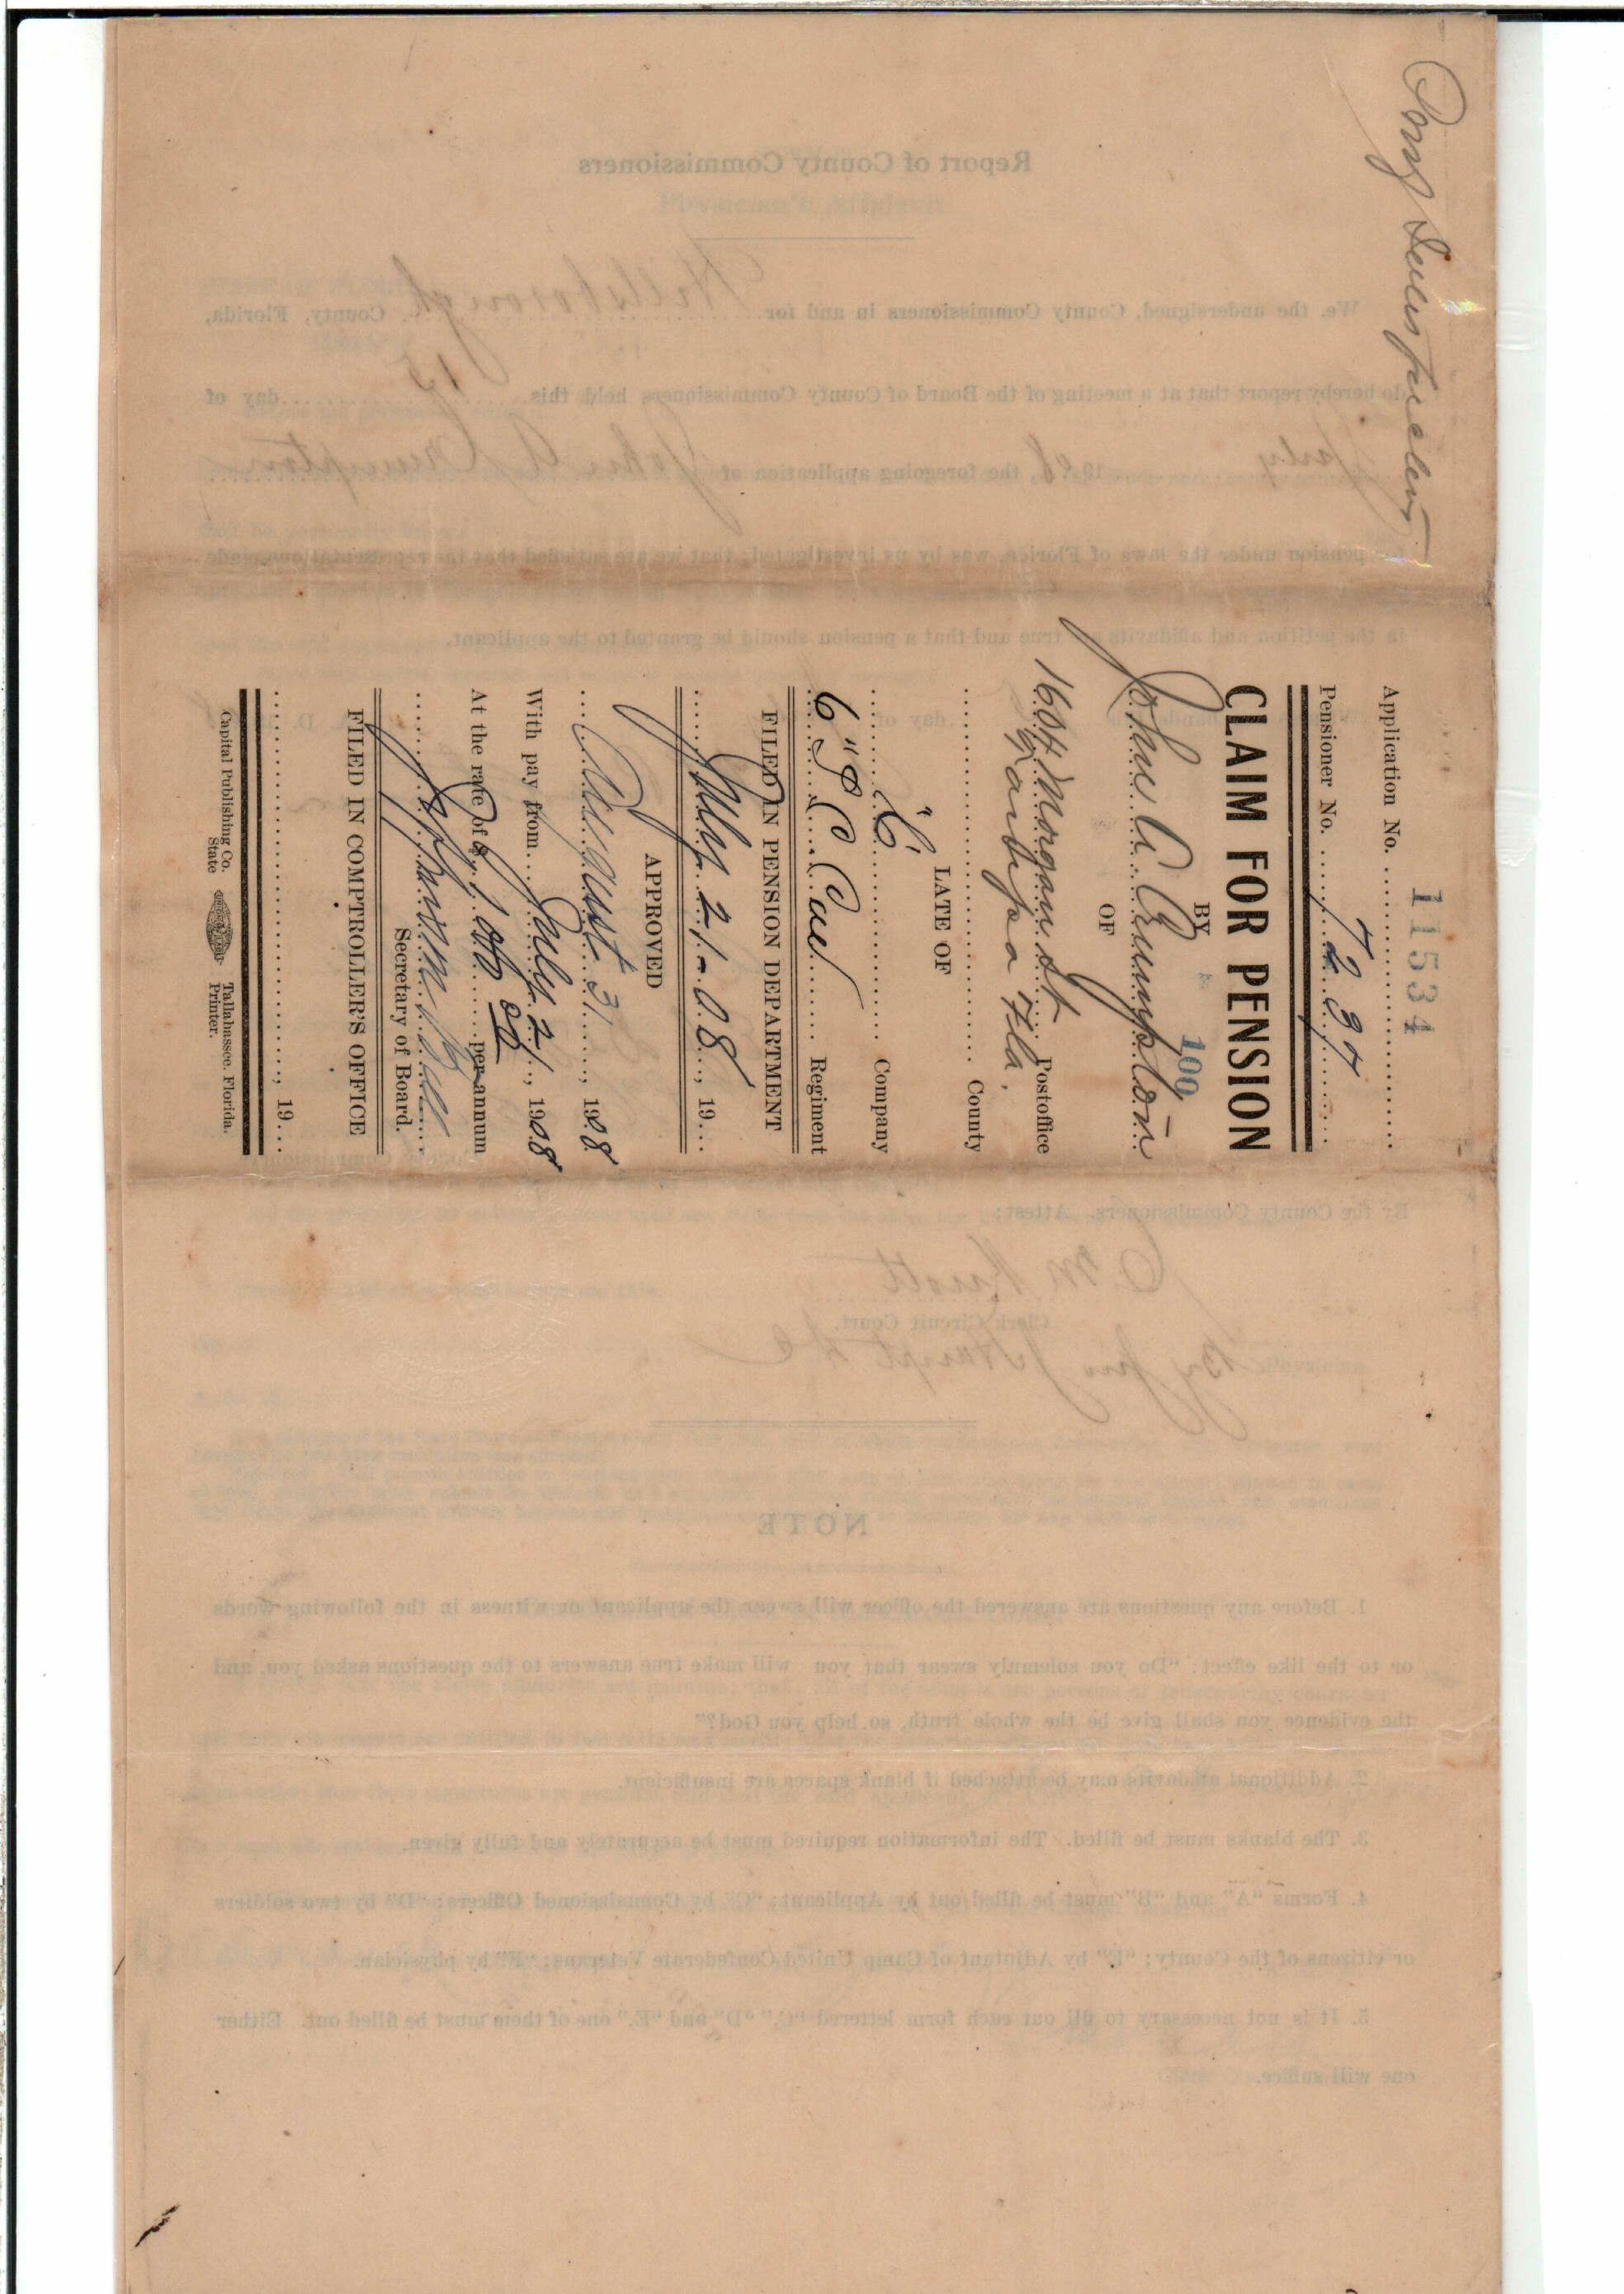 11534
Application No.
Pensioner No. 7237
CLAIM FOR PENSION
BY
100
John A. Crumpton
OF
1604 Morgan St Postoffice
Tampa Fla.
County
LATE OF
"C" Company
6" S C Cav Regiment
FILED IN PENSION DEPARTMENT
July 21-08, 19
APPROVED
August 31, 1908
With pay from July 21, 1908
At the rate of $ 100 00 per annum
Secretary of Board.
FILED IN COMPTROLLER'S OFFICE
, 19
Capital Publishing Co.
State
Printer.
Tallahassee, Florida.
Report of County Commissioners
We, the undersigned, County Commissioners in and for Hillsborough County, Florida,
do hereby report that at a meeting of the Board of County Commissioners held this 15 day of
July 1908, the foregoing application of John A Crumpton
for pension under the laws of Florida, was by us investigated; that we are satisfied that the representations made
in the petition and affidavits are true and that a pension should be granted to the applicant.
day of
By the County Commissioners. Attest:
Clerk Circuit Court.
NOTE
1. Before any questions are answered the officer will swear the applicant or witness in the following words
or to the like effect: "Do you solemnly swear that you will make true answers to the questions asked you, and
the evidence you shall give be the whole truth, so help you God?"
2. Additional affidavits may be attached if blank spaces are insufficient.
3. The blanks must be filled. The information required must be accurately and fully given.
4. Forms "A" and "B" must be filled out by Applicant; "C" by Commissioned Officers; "D" by two soldiers
or citizens of the County; "E" by Adjutant of Camp United Confederate Veterans; "F" by physician.
5. It is not necessary to fill out each form lettered "C," "D" and "E," one of them must be filled out. Either
one will suffice.